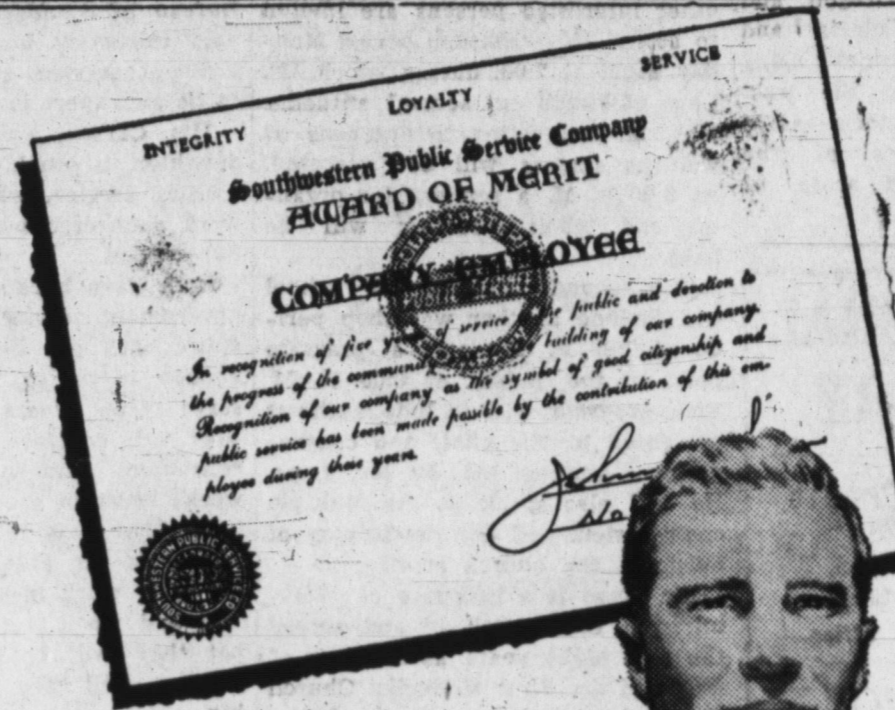 INTEGRITY LOYALTY SERVICE
Southwestern Public Service Company
AWARD OF MERIT
COMPANY EMPLOYEE
In recognition of five of service public and devotion to
the progress of the building of our company.
Recognition of our company as the symbol of good citizenship and
public service has been made possible by the contribution of this em-
ployee during these years.
SOUTHWESTERN PUBLIC SERVICE CO